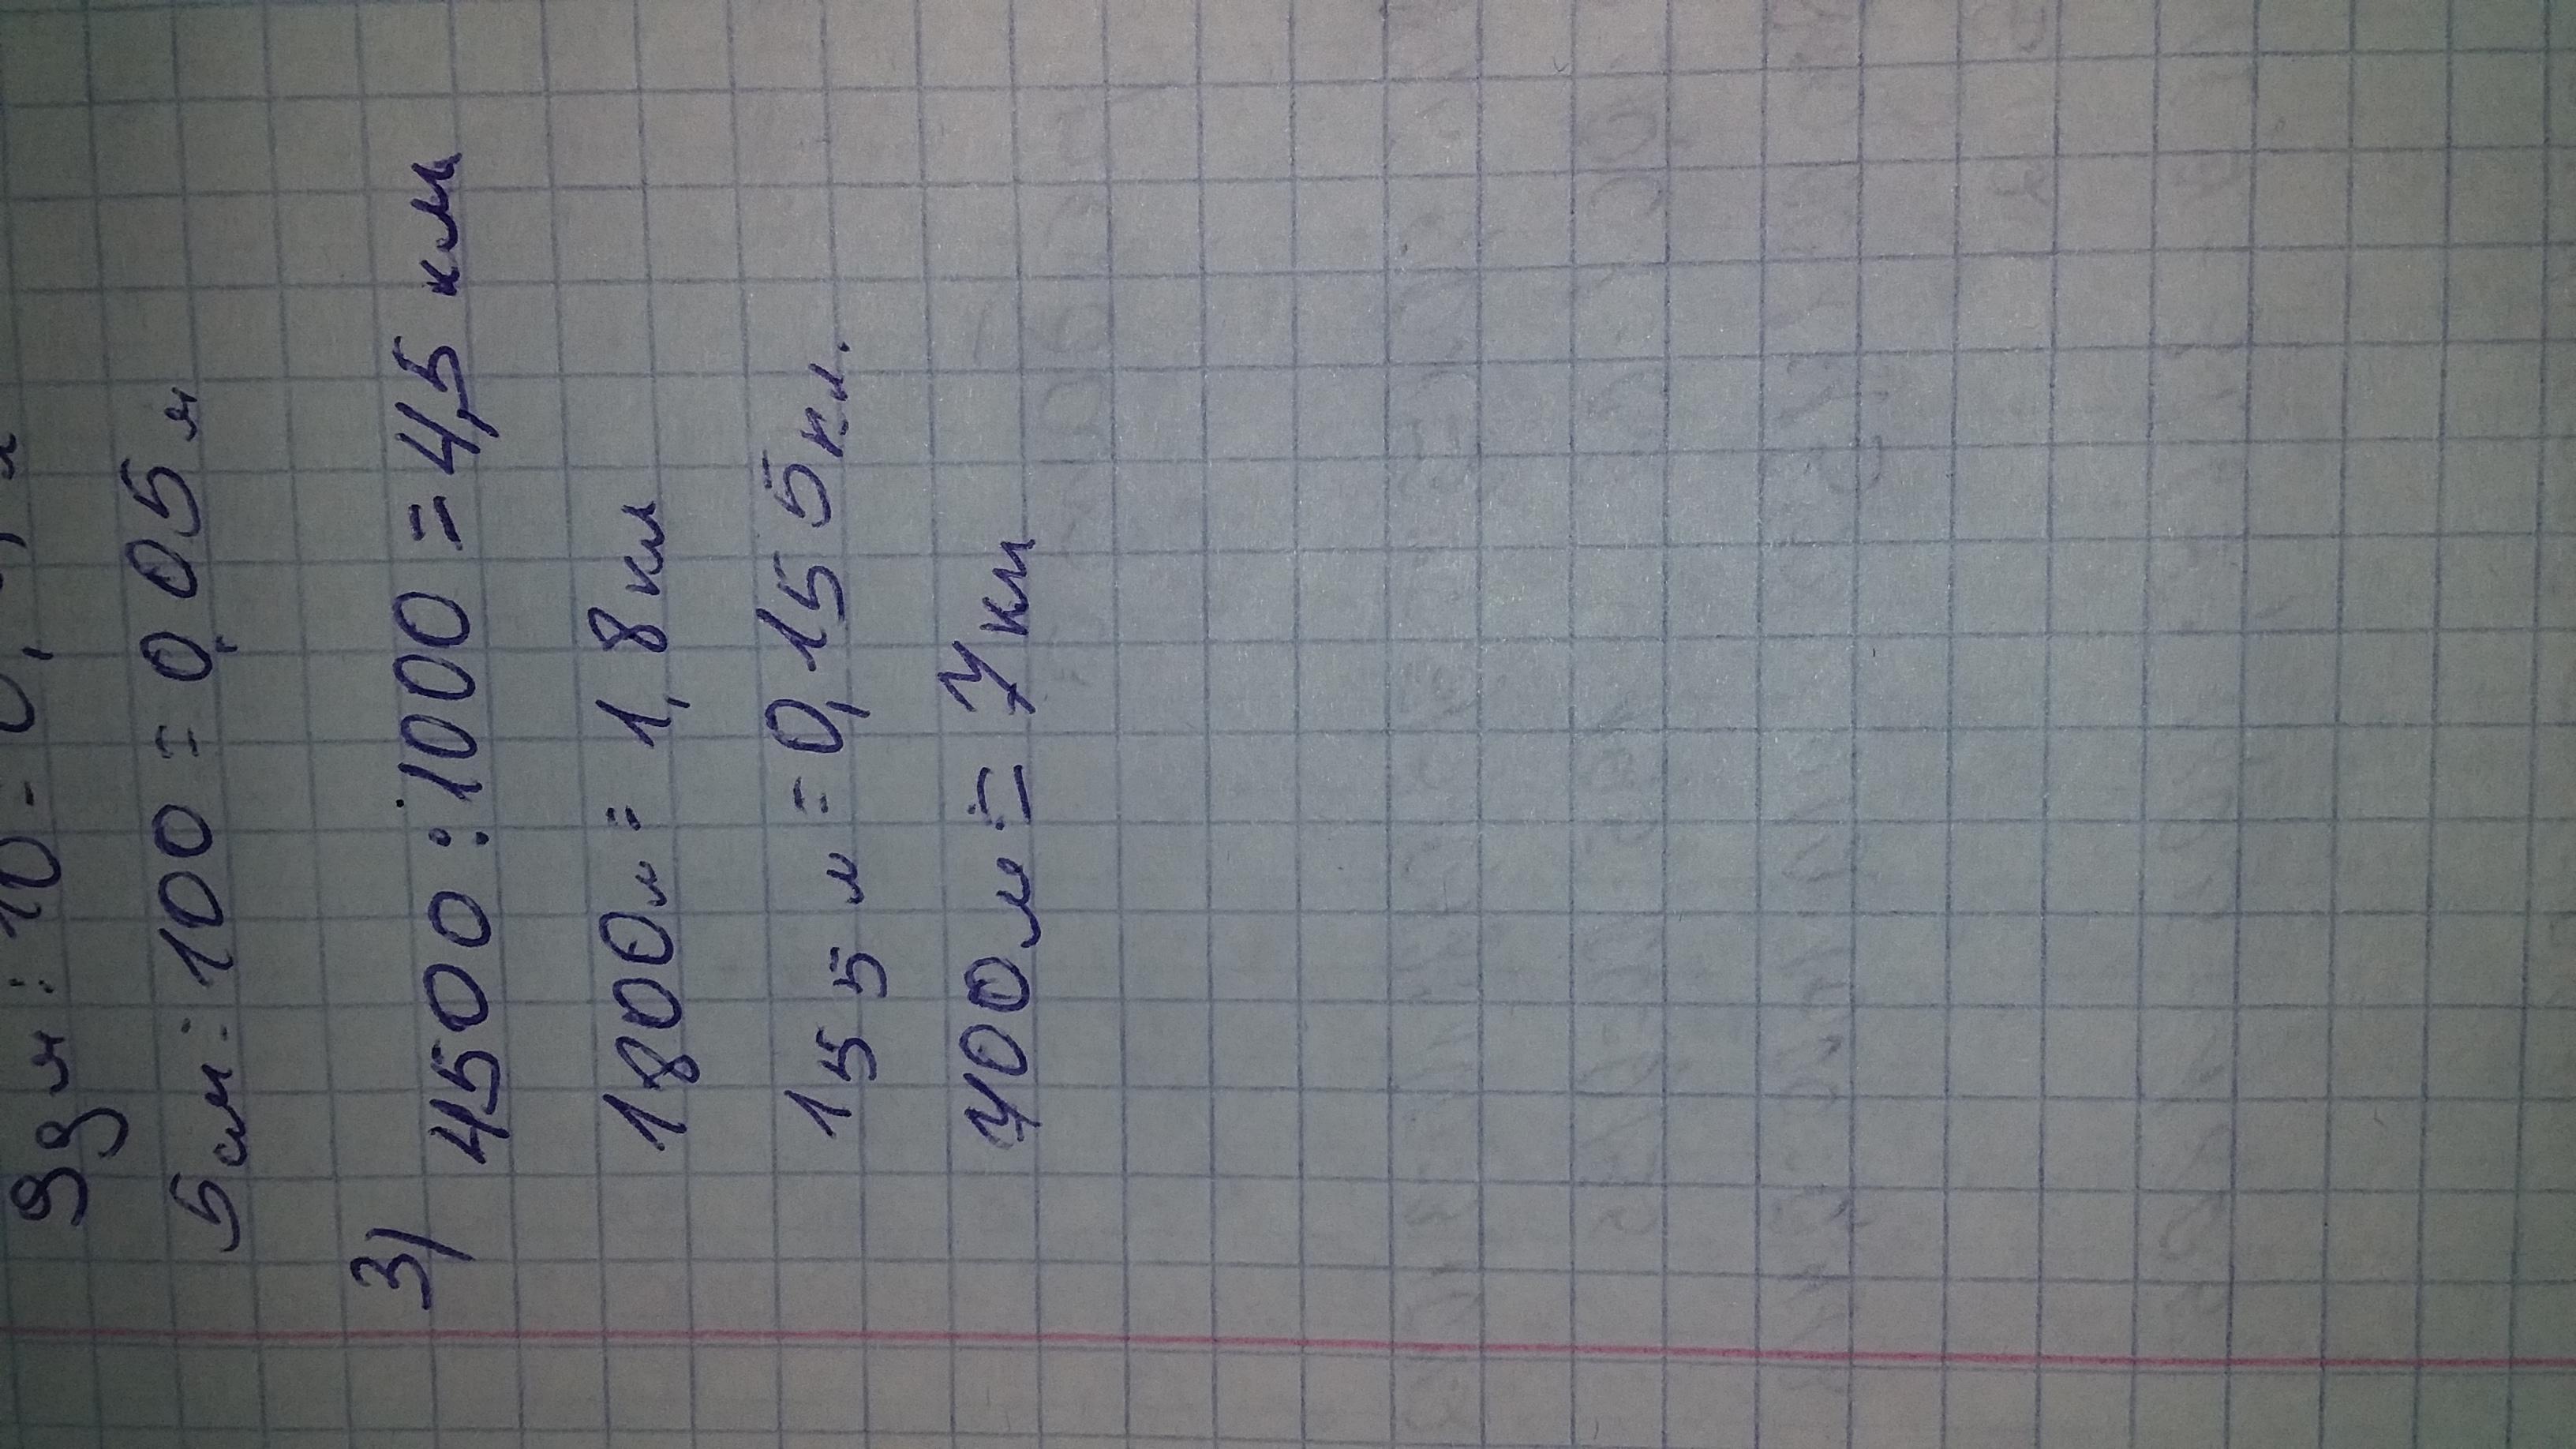 9дм : 10 = 0,
5см : 100 = 0,05 м
3) 4500 : 1000 = 4,5 км
1800м = 1,8 км
155 м = 0,155 км.
700м = 7 км